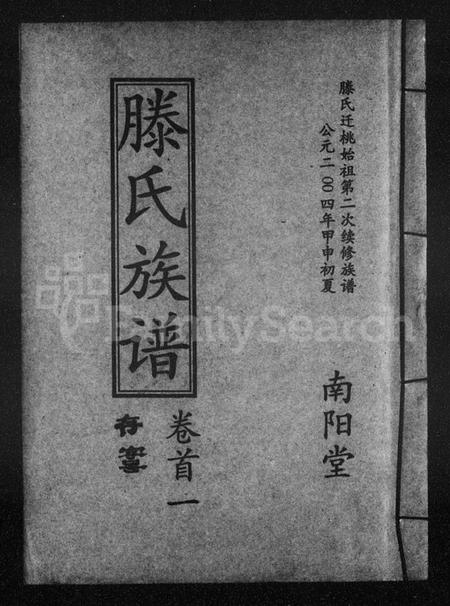 滕氏迁桃始祖第二次续修族谱
公元二〇〇四年甲申初夏
南阳堂
滕氏族谱
卷首一
FamilySearch